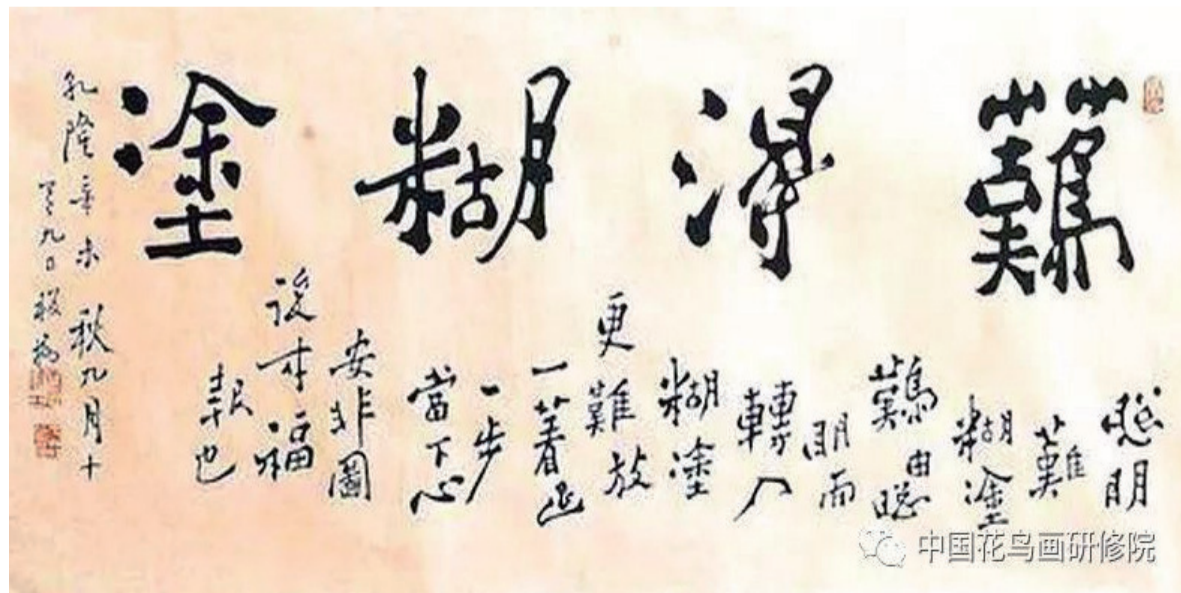 難得糊塗
聰明
難
糊塗
難由聰
明而
轉入
糊塗
更難放
一著退
一步
當下心
安非圖
後來福
報也
乾隆辛未秋九月十
有九日板橋
中国花鸟画研修院